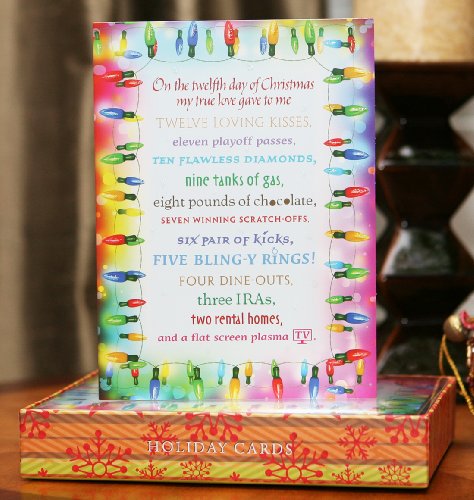 On the twelfth day of Christmas
my true love gave to me
TWELVE LOVING KISSES,
eleven playoff passes,
TEN FLAWLESS DIAMONDS,
nine tanks of gas,
eight pounds of chocolate,
SEVEN WINNING SCRATCH-OFFS,
SIX PAIR OF KICKS,
FIVE BLING-Y RINGS!
FOUR DINE-OUTS,
three IRAs,
two rental homes,
and a flat screen plasma TV.
HOLIDAY CARDS